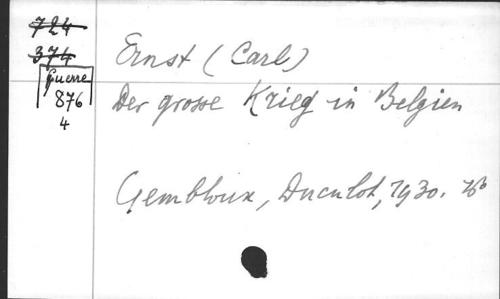 724
374
Guerre
876
4
Ernst (Carl)
Der grosse Krieg in Belgien
Gembloux, Duculot, 1930.